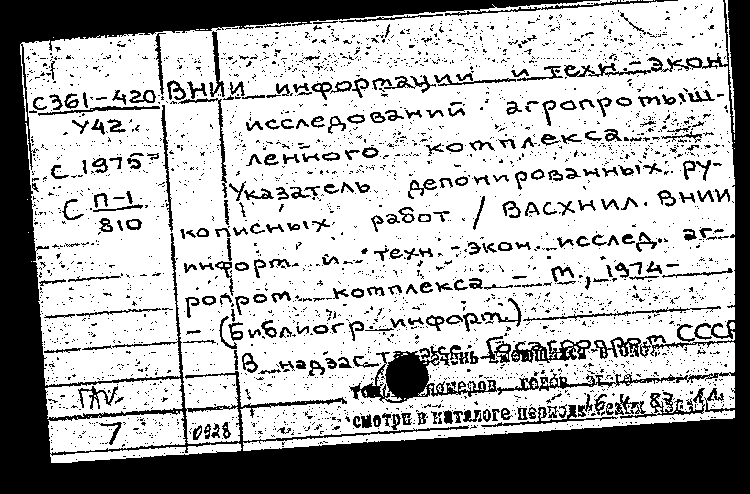 С361-420 ВНИИ информации и техн.-экон.
У42 исследований агропромыш-
с 1975- ленного комплекса
С П-1 Указатель депонированных ру-
810 кописных работ / ВАСХНИЛ. ВНИИ
информ. и техн.-экон. исслед. аг-
ропром. комплекса. - М., 1974-
- (Библиогр. информ.)
В надзаг. также: Госагропром СССР
имеющихся в
номеров, годов этого
смотри в каталоге
7 0628